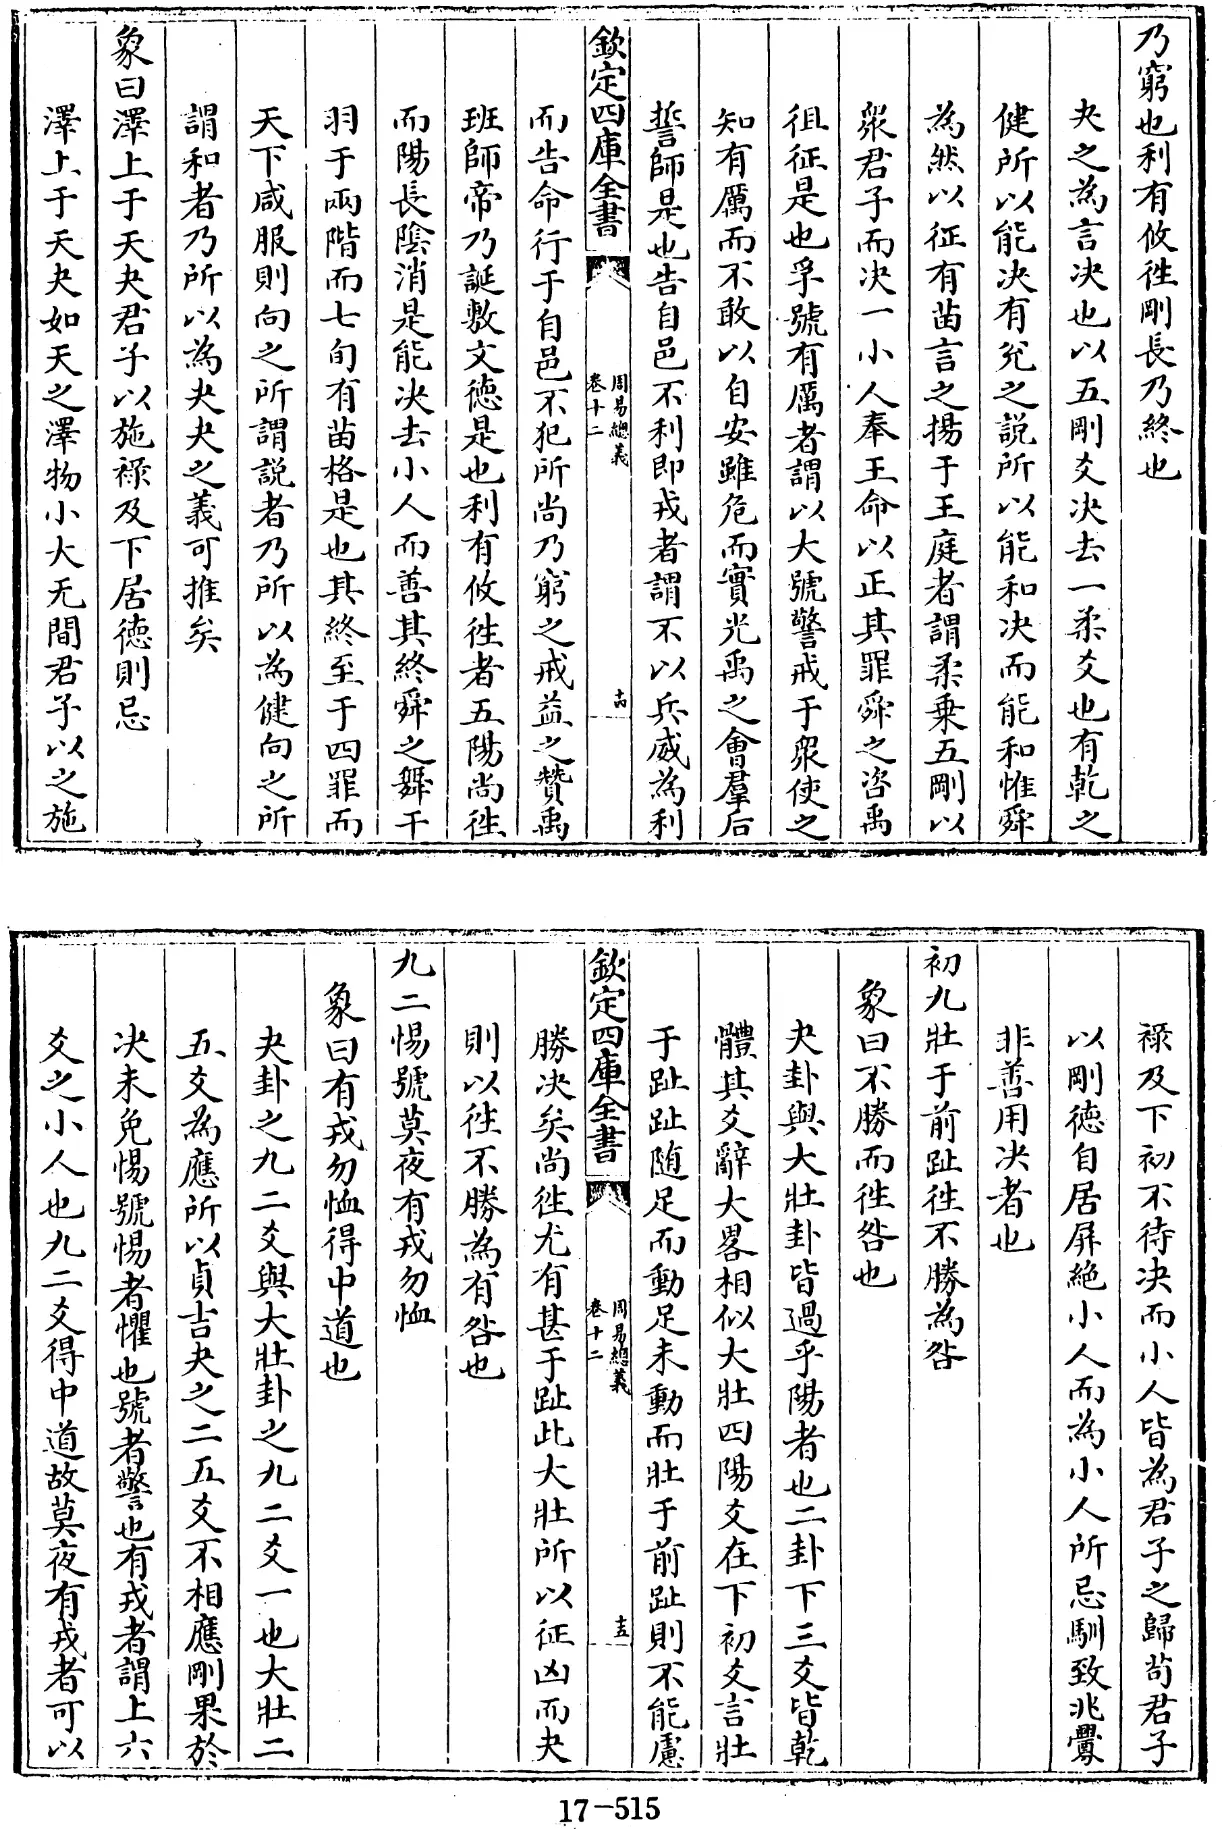 乃窮也利有攸徃剛長乃終也
夬之為言决也以五剛爻决去一柔爻也有乾之
健所以能决有兊之說所以能和决而能和惟舜
為然以征有苗言之揚于王庭者謂柔乗五剛以
衆君子而决一小人奉王命以正其罪舜之咨禹
徂征是也孚號有厲者謂以大號警戒于衆使之
知有厲而不敢以自安雖危而實光禹之會羣后
誓師是也告自邑不利即戎者謂不以兵威為利
欽定四庫全書
周易總義
卷十二
十四
而告命行于自邑不犯所尚乃窮之戒益之贊禹
班師帝乃誕敷文徳是也利有攸徃者五陽尚徃
而陽長陰消是能决去小人而善其終舜之舞干
羽于兩階而七旬有苗格是也其終至于四罪而
天下咸服則向之所謂説者乃所以為健向之所
謂和者乃所以為夬夬之義可推矣
象曰澤上于天夬君子以施祿及下居徳則忌
澤上于天夬如天之澤物小大无間君子以之施
祿及下初不待决而小人皆為君子之歸茍君子
以剛徳自居屏絶小人而為小人所忌馴致兆釁
非善用决者也
初九壯于前趾徃不勝為咎
象曰不勝而徃咎也
夬卦與大壯卦皆過乎陽者也二卦下三爻皆乾
體其爻辭大畧相似大壯四陽爻在下初爻言壯
于趾趾随足而動足未動而壯于前趾則不能慮
欽定四庫全書
周易總義
卷十二
十五
勝决矣尚徃尤有甚于趾此大壯所以征凶而夬
則以徃不勝為有咎也
九二惕號莫夜有戎勿恤
象曰有戎勿恤得中道也
夬卦之九二爻與大壯卦之九二爻一也大壯二
五爻為應所以貞吉夬之二五爻不相應剛果於
决未免惕號惕者懼也號者警也有戎者謂上六
爻之小人也九二爻得中道故莫夜有戎者可以
17-515